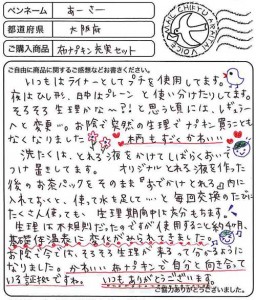 ペンネーム あーさー
都道府県 大阪府
ご購入商品 布ナプキン充実セット
ご自由に商品に関するご感想などお書きください。
いつもはライナーとしてプチを使用してます。
夜はひし形、日中はプレーンと使い分けたりしてます。
そろそろ生理かな〜?!と思う頃には、レギュラー
へと変更…。お陰で突然の生理でナプキン買うことも
なくなりました 柄もすごくかわいい
洗たくは、とれる液をかけてしばらくおいて
つけ置きしてます。オリジナルとれる液を作った
後のお茶パックをそのままおでかけとれる内に
入れておくと、使て水も足して…と毎回交換のたびに
たくさん使ても、生理期間中は充分もちます。
生理は不規則だったのですが使用すること約4か月、
基礎体温表に変化がみられてきました。
お陰で今では、そろそろ生理が来るって分かるように
なりました。かわいい布ナプキンで自分と向き合って
いる証拠ですね。いつもありがとうございます。
ご協力ありがとうございました。
MAIL CHIEKU
ARATAI VOICE